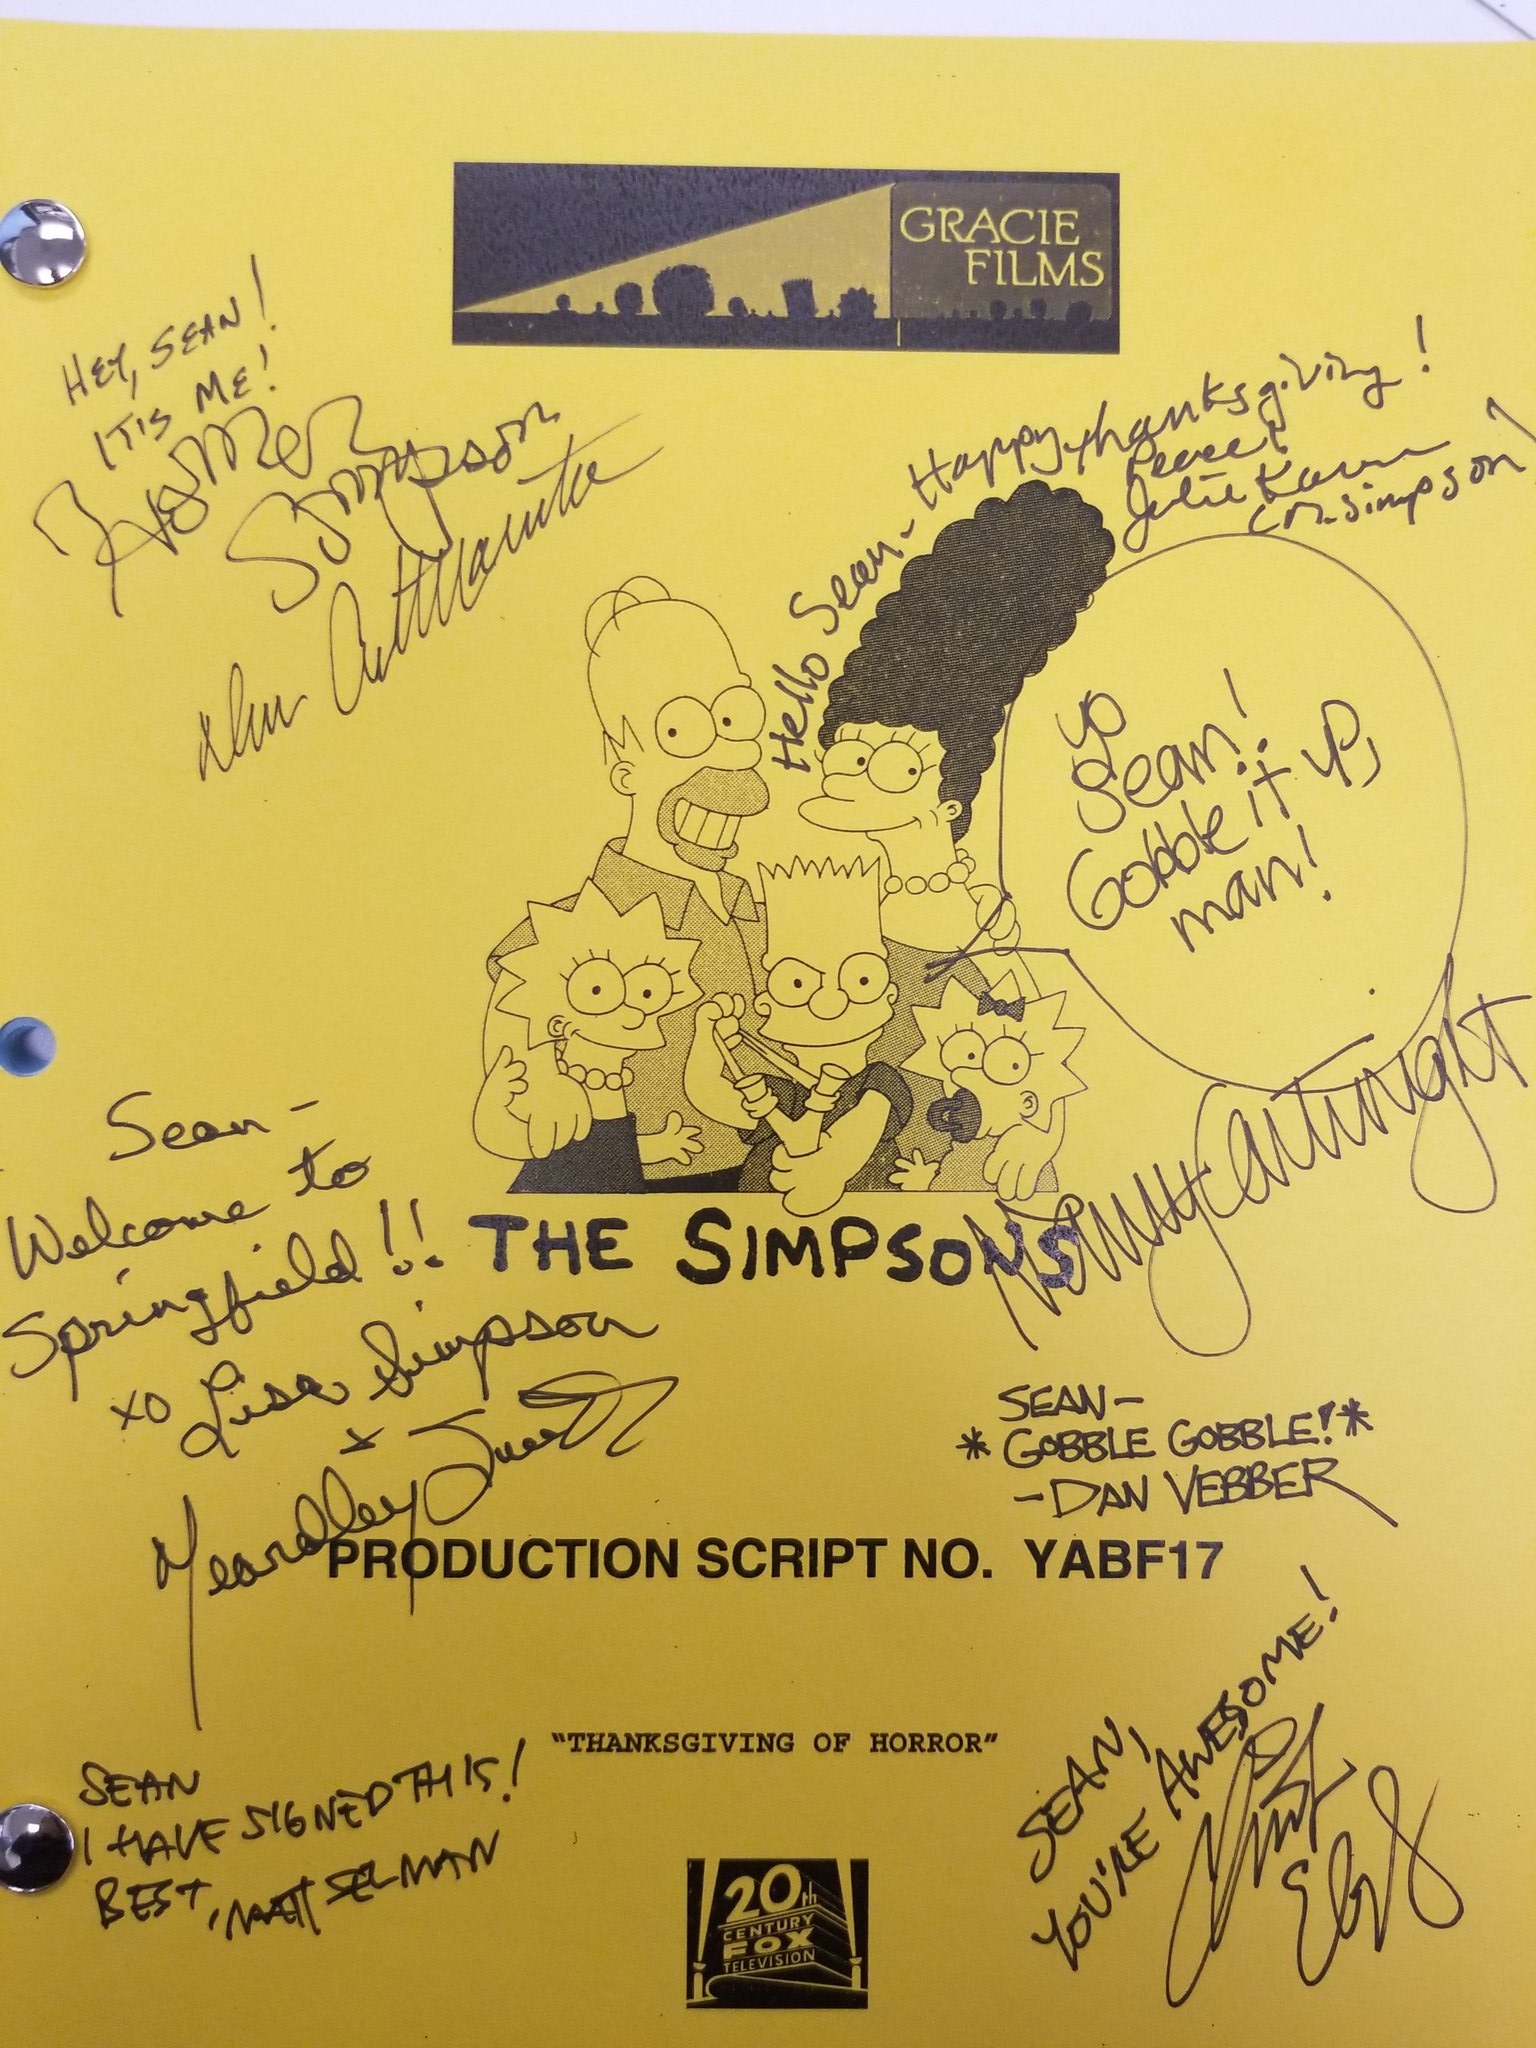 GRACIE
FILMS
HEY, SEAN!
IT IS ME!
HOMER
SIMPSON
Dan Castellaneta
Hello Sean - Happy thanksgiving!
Peace!
Julie Kavner
(M. Simpson)
Yo
Sean!
Gobble it up,
man!
Nancy Cartwright
Sean -
Welcome to
Springfield!!
xo Lisa Simpson
+
Yeardley Smith
THE SIMPSONS
SEAN-
*GOBBLE GOBBLE!*
-DAN VEBBER
PRODUCTION SCRIPT NO. YABF17
"THANKSGIVING OF HORROR"
SEAN
I HAVE SIGNED THIS!
BEST, MATT SELMAN
SEAN,
YOU'RE AWESOME!
20th
CENTURY
FOX
TELEVISION